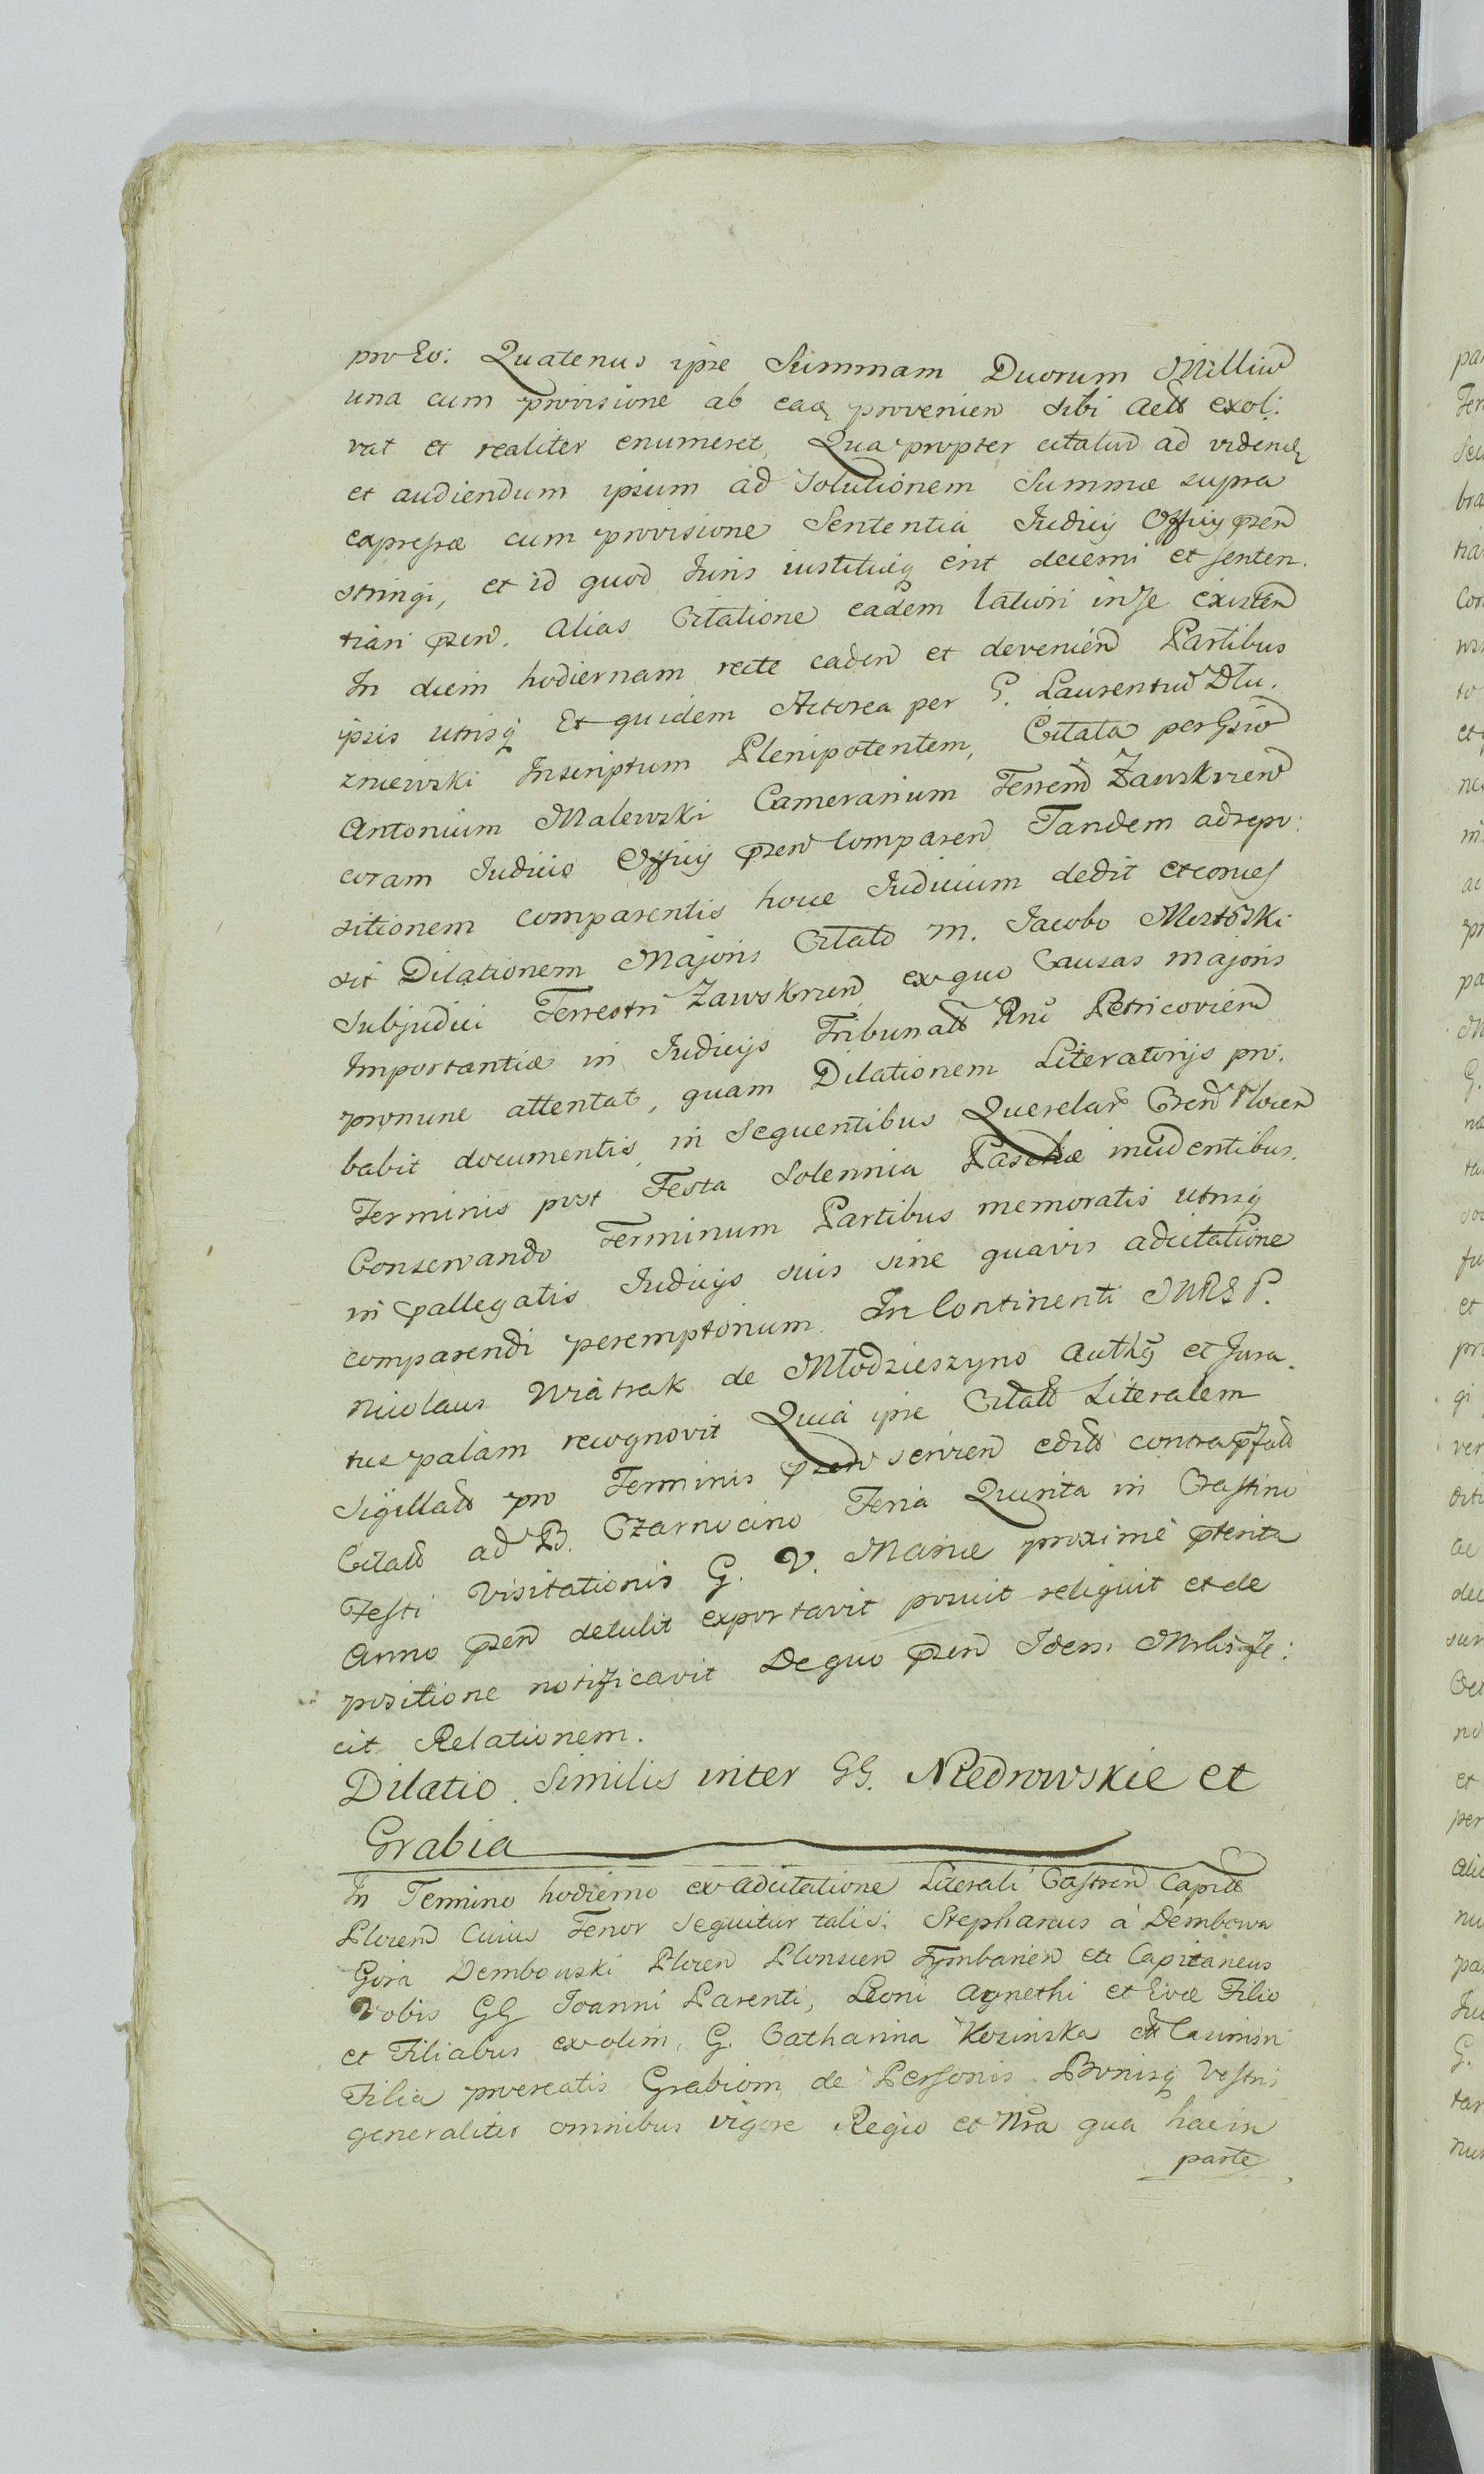 pro Eo: Quatenus ipse Summam Duorum Milliu
una cum provisione ab eaq provenien sibi Actt exol:
vat et realiter enumeret, Quapropter citatur ad videndq
et audiendum ipsum ad Solutionem Summæ supra
expressæ cum provisione Sententia Judicij Officij pzen
stringi, et id quod Juris iustitiæq erit decerni et senten.
tiari pzen. alias Citatione eadem latiori in se existen
In diem hodiernam recte caden et devenien Partibus
ipsis utrisq Et quidem Actorea per G. Laurentiu Dłu.
zniewski Inscriptum Plenipotentem, Citata per Gsiō
Antonium Malewski Camerarium Terren Zawskrzen
coram Judicio Officij pzen comparen Tandem ad repo:
sitionem comparentis hocce Judicium dedit et conces
sit Dilationem Majoris Citato M. Jacobo Mostoski
Subjudici Terrestri Zawskrzen, ex quo Causas majoris
Importantiæ in Judicijs Tribunalt Rni Petricovien
pronunc attentat, quam Dilationem Literatorijs pro.
babit documentis in Sequentibus Querelar Cren Plocen
Terminis post Festa Solennia Paschæ incidentibus.
Conservando Terminum Partibus memoratis utrisq
in pallegatis Judicijs suis sine quavis adcitatione
comparendi peremptorium. In Continenti MRSP.
Nicolaus Wiatrak de Młodzieszyno Authg et Jura.
tus palam recognovit Quia ipse Citatt Literalem
Sigillatt pro Terminis pzen servien editt contra pfatt
Citatt ad B. Czarnocino Feria Quinta in Crastino
Festi Visitationis G. V. Mariæ proxime pterita
Anno pzen detulit exportavit posuit reliquit et de
positione notificavit De quo pzen Idem Mrlis fe:
cit Relationem.
Dilatio Similis inter GG. Niedrowskie et
Grabia
In Termino hodierno ex adcitatione Literali Castren Capitt
Plocen Cuius Tenor Sequitur talis: Stephanus à Dembowa
Gora Dembowski Plocen Plonscen Tymbarien ett Capitaneus
Vobis GG Joanni Parenti, Leoni Agnethi et Evæ Filio
et Filiabus ex olim, G. Catharina Kozinska ett Casimiri
Filia procreatis Grabiom de Personis Bonisq Vestris
generaliter omnibus vigore Regio et Nra qua hac in
parte